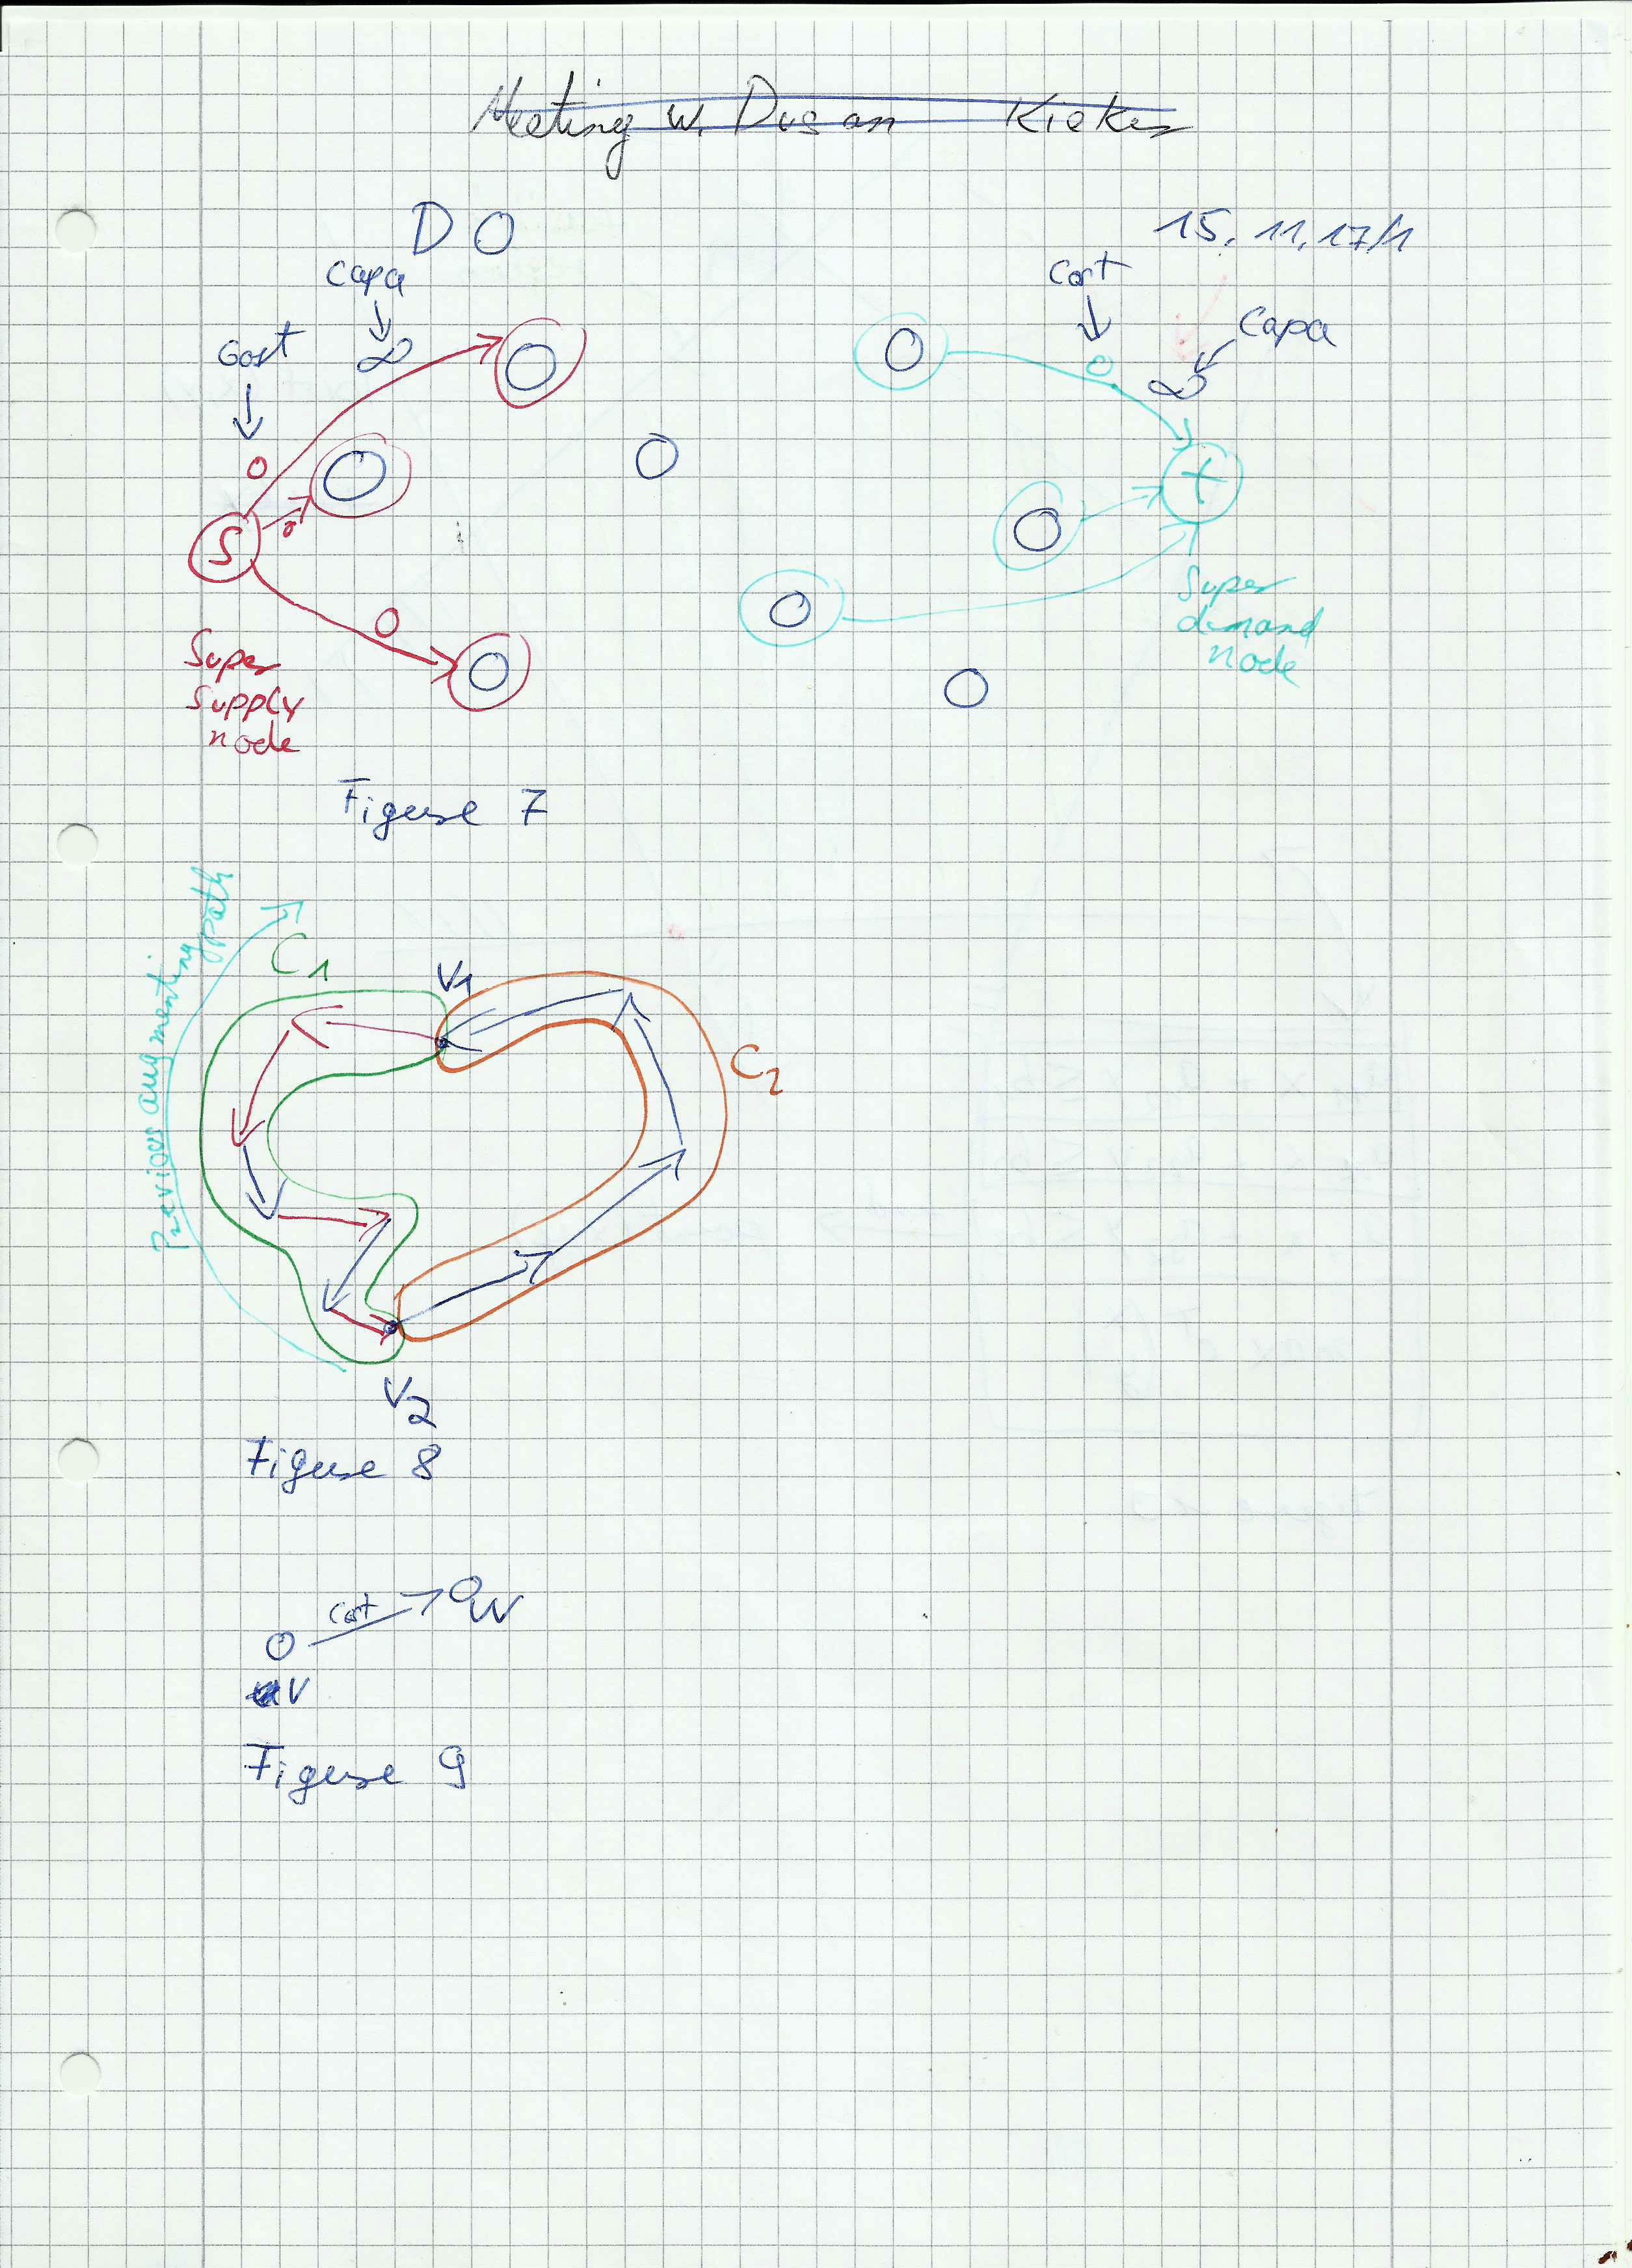 Meeting w. Dusan
DO
15. 11. 17/1
Capa
∞
Cost
0
0
0
S
Super
Supply
node
Cost
0
Capa
∞
t
Super
demand
node
Figure 7
Previous augmenting path
C1
V1
C2
V2
Figure 8
cost
W
V
Figure 9